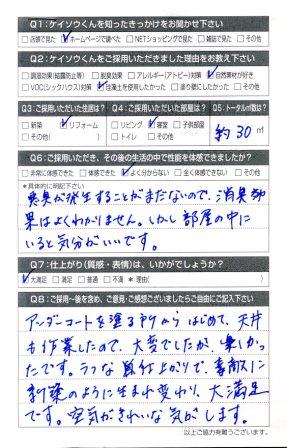 Q1：ケイソウくんを知ったきっかけをお聞かせ下さい
□店頭で見た ☑ホームページで調べた □NETショッピングで見た □雑誌で見た □その他
Q2：ケイソウくんをご採用いただきました理由をお教え下さい
□調湿効果(結露防止等) □脱臭効果 □アレルギー(アトピー)対策 ☑自然素材が好き
□VOC(シックハウス)対策 ☑珪藻土を使用したかった □塗り壁にしたかった □その他
Q3：ご採用いただいた住居は？ Q4：ご採用いただいた部屋は？ Q5：トータル㎡数は？
□新築 ☑リフォーム □リビング ☑寝室 □子供部屋
□その他( ) □トイレ □その他( )
約30㎡
Q6：ご採用いただき、その後の生活の中で性能を体感できましたか？
□非常に体感できた □体感できた ☑よく分からない □全く体感できない □その他
*具体的に明記下さい
悪臭が発生することがまだないので、消臭効
果はよくわかりません。しかし部屋の中に
いると気分がいいです。
Q7：仕上がり(質感・表情)は、いかがでしょうか？
☑大満足 □満足 □普通 □不満 *理由( )
Q8：ご採用一後を含め、ご意見・ご感想ございましたらご自由にご記入下さい
アンダーコートを塗る所からはじめて、天井
も作業したので、大変でしたが、楽しかっ
たです。ラフな風仕上がりで、素敵に
新築のように生まれ変わり、大満足
です。空気がきれいな気がします。
以上ご協力有難うございます。